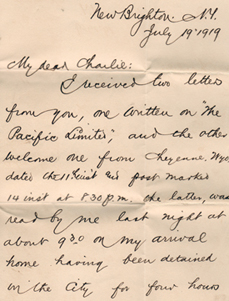 New Brighton. N.Y.
July 19" 1919
My dear Charlie:
I received two letters
from you, one written on "The
Pacific Limited", and the other
welcome one from Cheyenne, Wyo,
dated the 11" inst and post marked
14 inst at 8.30 p.m. the latter, was
read by me last night at
about 9 30 on my arrival
home having been detained
in the City for four hours